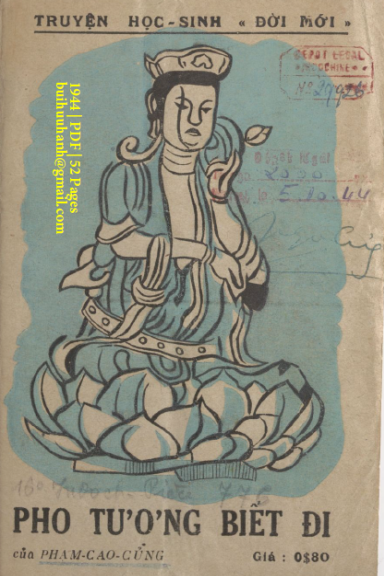 TRUYỆN HỌC-SINH « ĐỜI MỚI »
DEPOT LEGAL
INDOCHINE
1944 | PDF | 52 Pages
buihuuhanh@gmail.com
2000
5.10.44
PHO TƯỢNG BIẾT ĐI
của PHẠM-CAO-CỦNG
Giá : 0$80